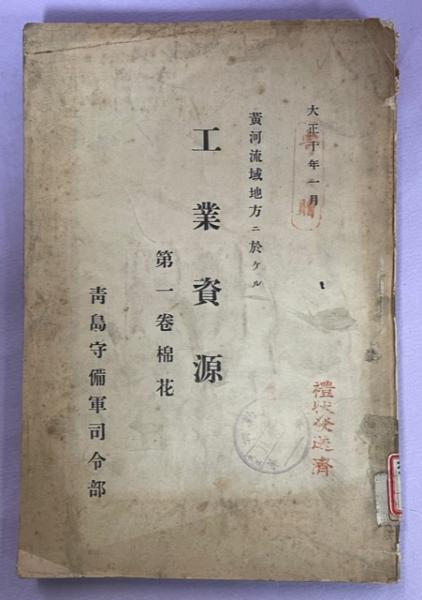 大正十年一月
寄贈
黃河流域地方ニ於ケル
工業資源
第一卷棉花
靑島守備軍司令部
禮狀發送濟